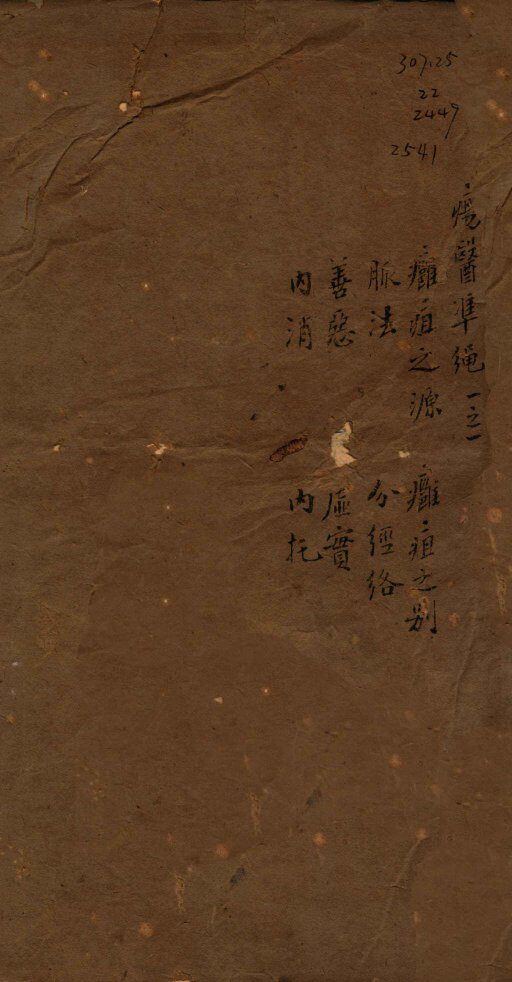 307.25
22
2449
2541
瘍醫準繩 一之一
癰疽之源 癰疽之别
脈法 分經絡
善惡 虛實
内消 内托